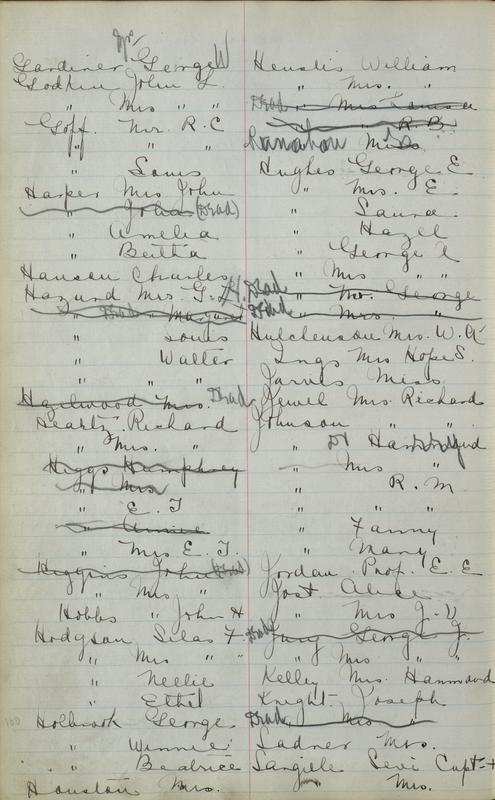 Mr.
Gardiner George W
Godkin John L.
" Mrs " "
Goff. Mr. R. C
" " "
" Louis
Harper Mrs John
" John (Dead)
" Amelia
" Bertha
Hansen Charles
Hazard Mrs. G. H.
" Dead " Margaret
" Louis
" Walter
" " "
Hazelwood Mrs. Dead
Heartz. Richard
" Mrs. "
Higgs Humphrey
" Mrs
" E. T
" Annie
" Mrs E. T.
Higgins John (Dead)
" Mrs "
Hobbs " John H
Hodgson Silas F.
" Mrs " "
" Neelie
" Ethel
100 Holbrook George
" Winnie
" Beatrice
Houston Mrs.
Henslis William
" Mrs. "
Dead " Mrs
" " R. B.
Miss
Hughes George E
" Mrs. E.
" Laura
" Hazel
" George A
" Mrs " "
Dead " Mr. George
Dead " Mrs. "
Hutchenson Mrs. W. A
Ings Mrs Hope S.
Jarvis Miss
Jewel Mrs. Richard
Johnson " "
" Dr
" Mrs "
" R. M
" " "
" Fanny
" Mary
Jordan Prof. E. E
Jost Alice
" Mrs J. V
Dead Jury George J.
" Mrs " "
Kelley Mrs. Hammond
Knight Joseph
Dead " Mrs "
Ladner Mrs.
Langille Levi Capt +
" Mrs.